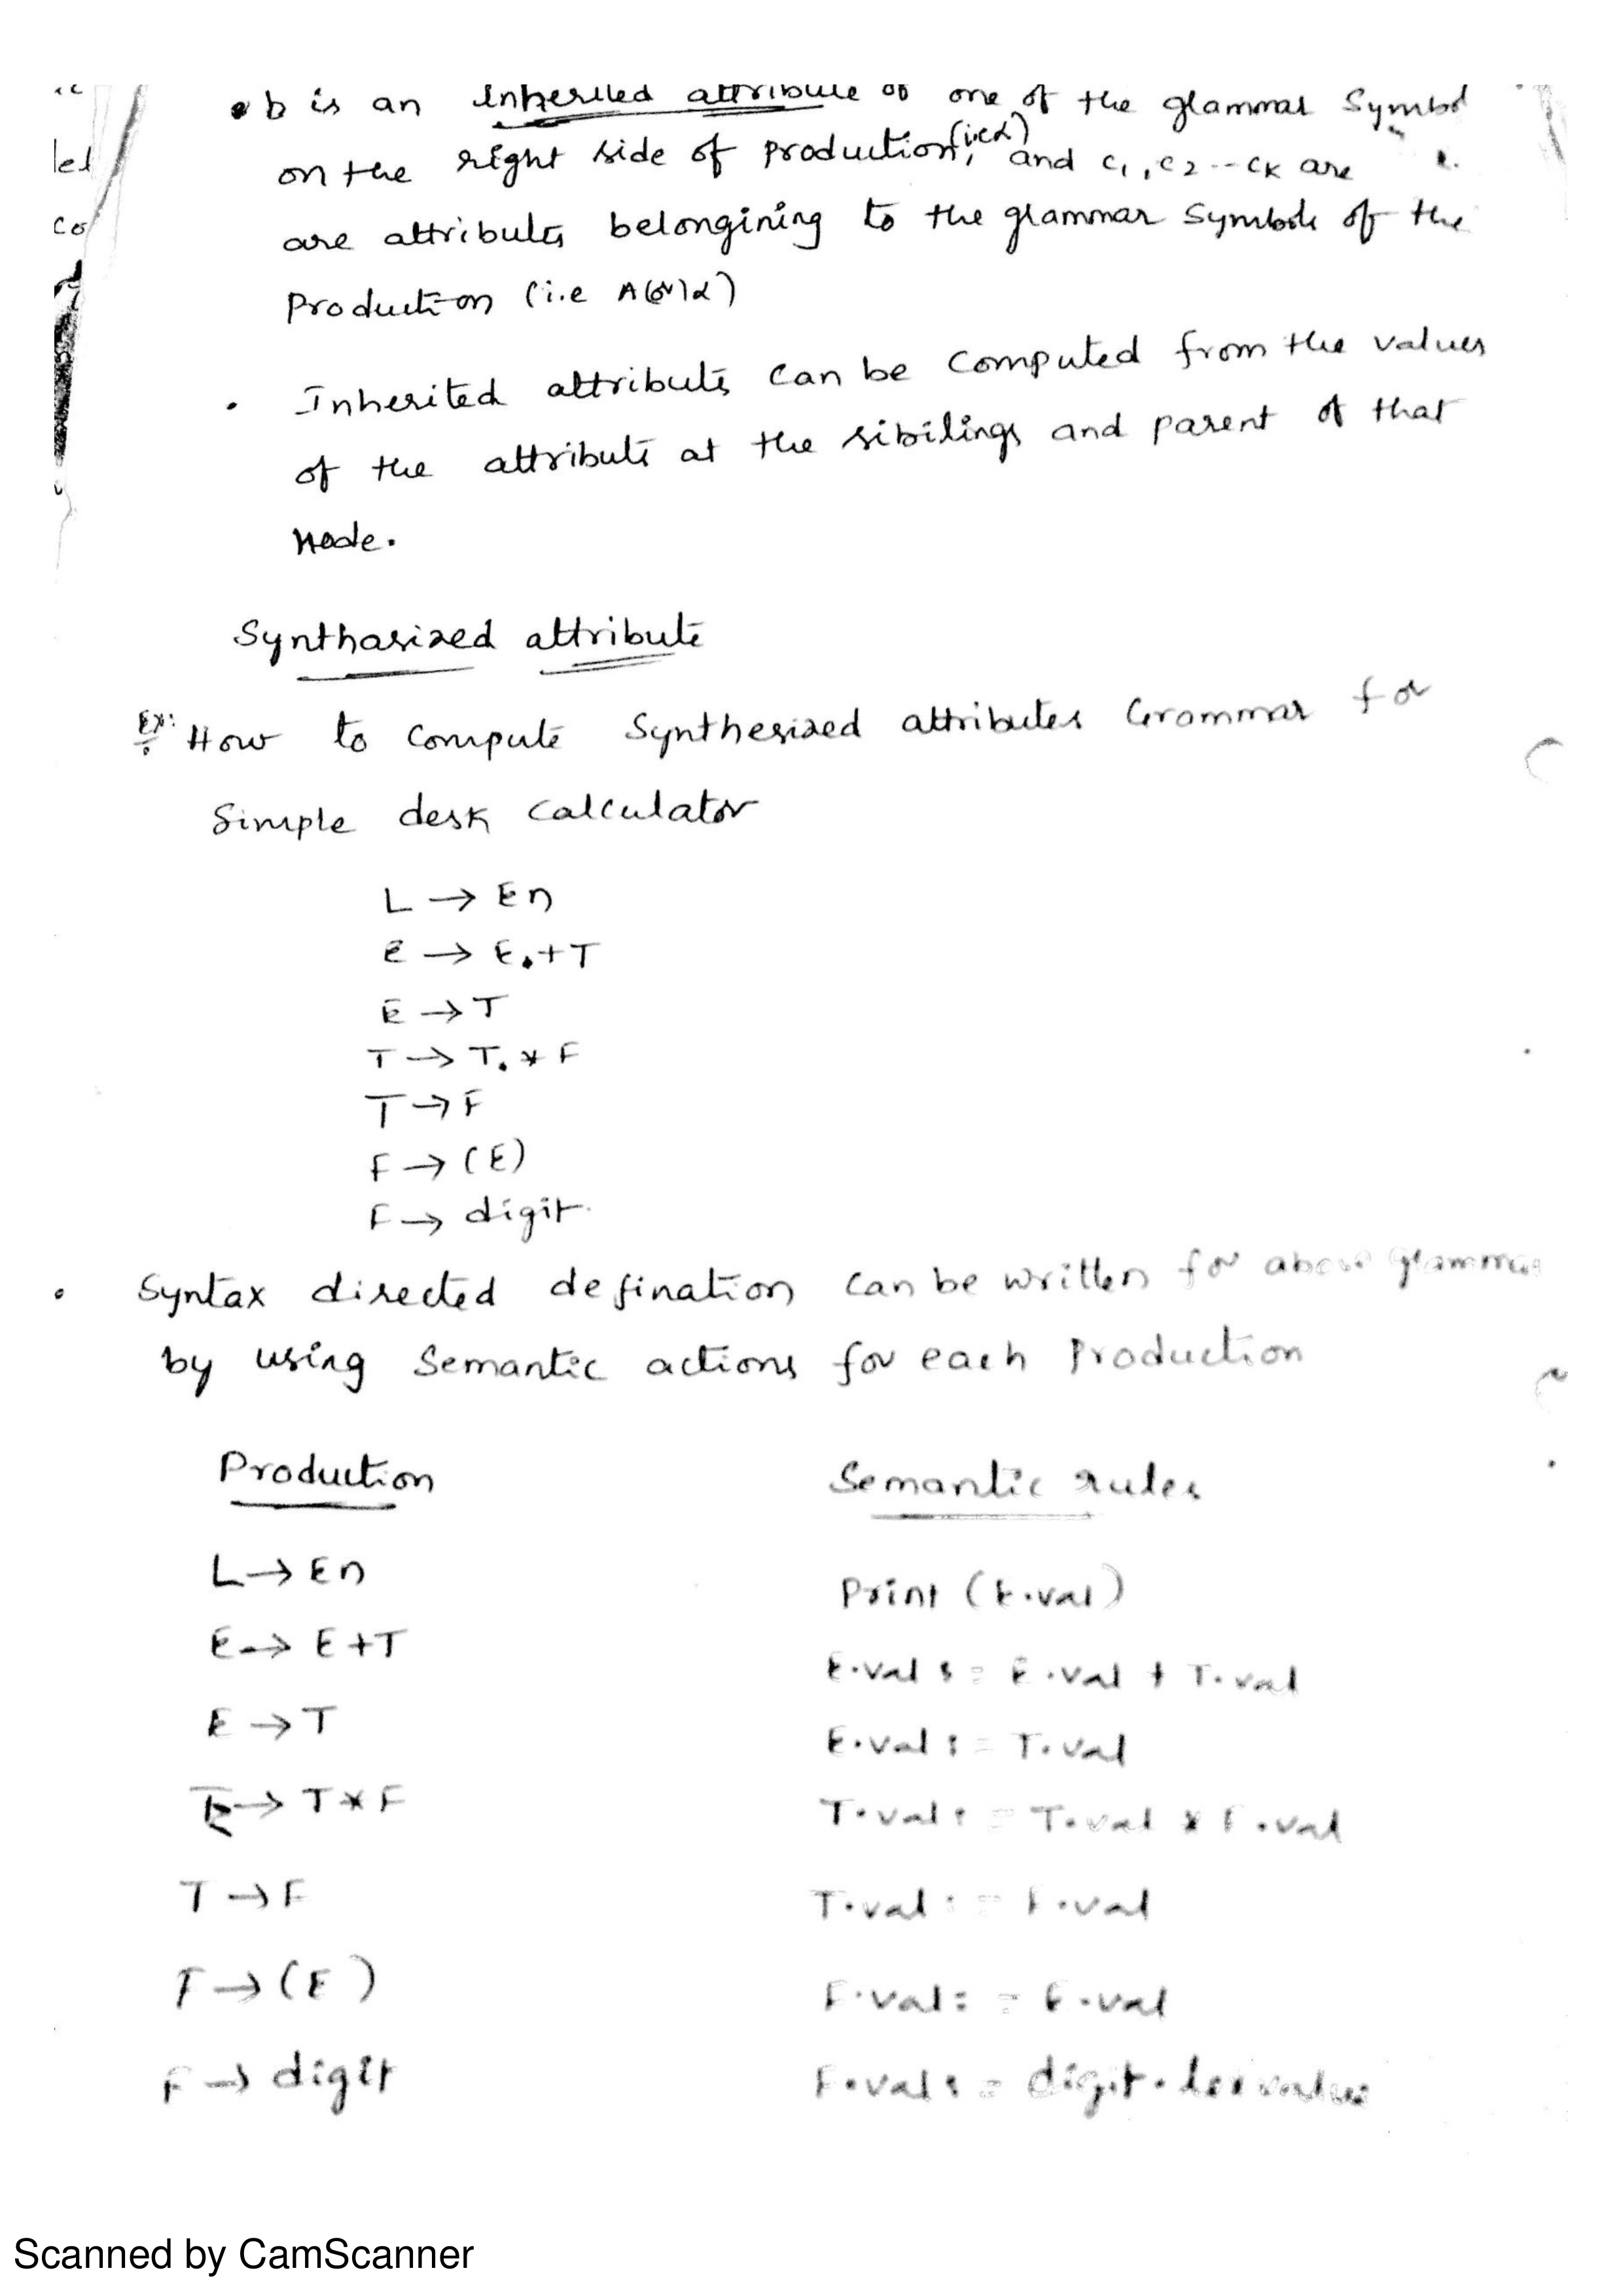 • b is an Inherited attribute of one of the glammar Symbol
on the right side of production, (i.e α) and c1, c2 -- ck are
are attributes belongining to the glammar Symbols of the
Production (i.e A (or) α)
• Inherited attribute can be computed from the values
of the attribute at the sibilings and parent of that
Node.
Synthasized attribute
Ex: How to compute Synthesized attributes Grammar for
Simple desk calculator
L → En
E → E.+T
E → T
T → T.*F
T → F
F → (E)
F → digit.
• Syntax directed defination can be written for above glammar
by using Semantic actions for each Production
Production Semantic rules
L → En Print (E.val)
E → E+T E.val := E.val + T.val
E → T E.val := T.val
T → T*F T.val := T.val * F.val
T → F T.val := F.val
F → (E) F.val := E.val
F → digit F.val := digit.lexvalue
Scanned by CamScanner